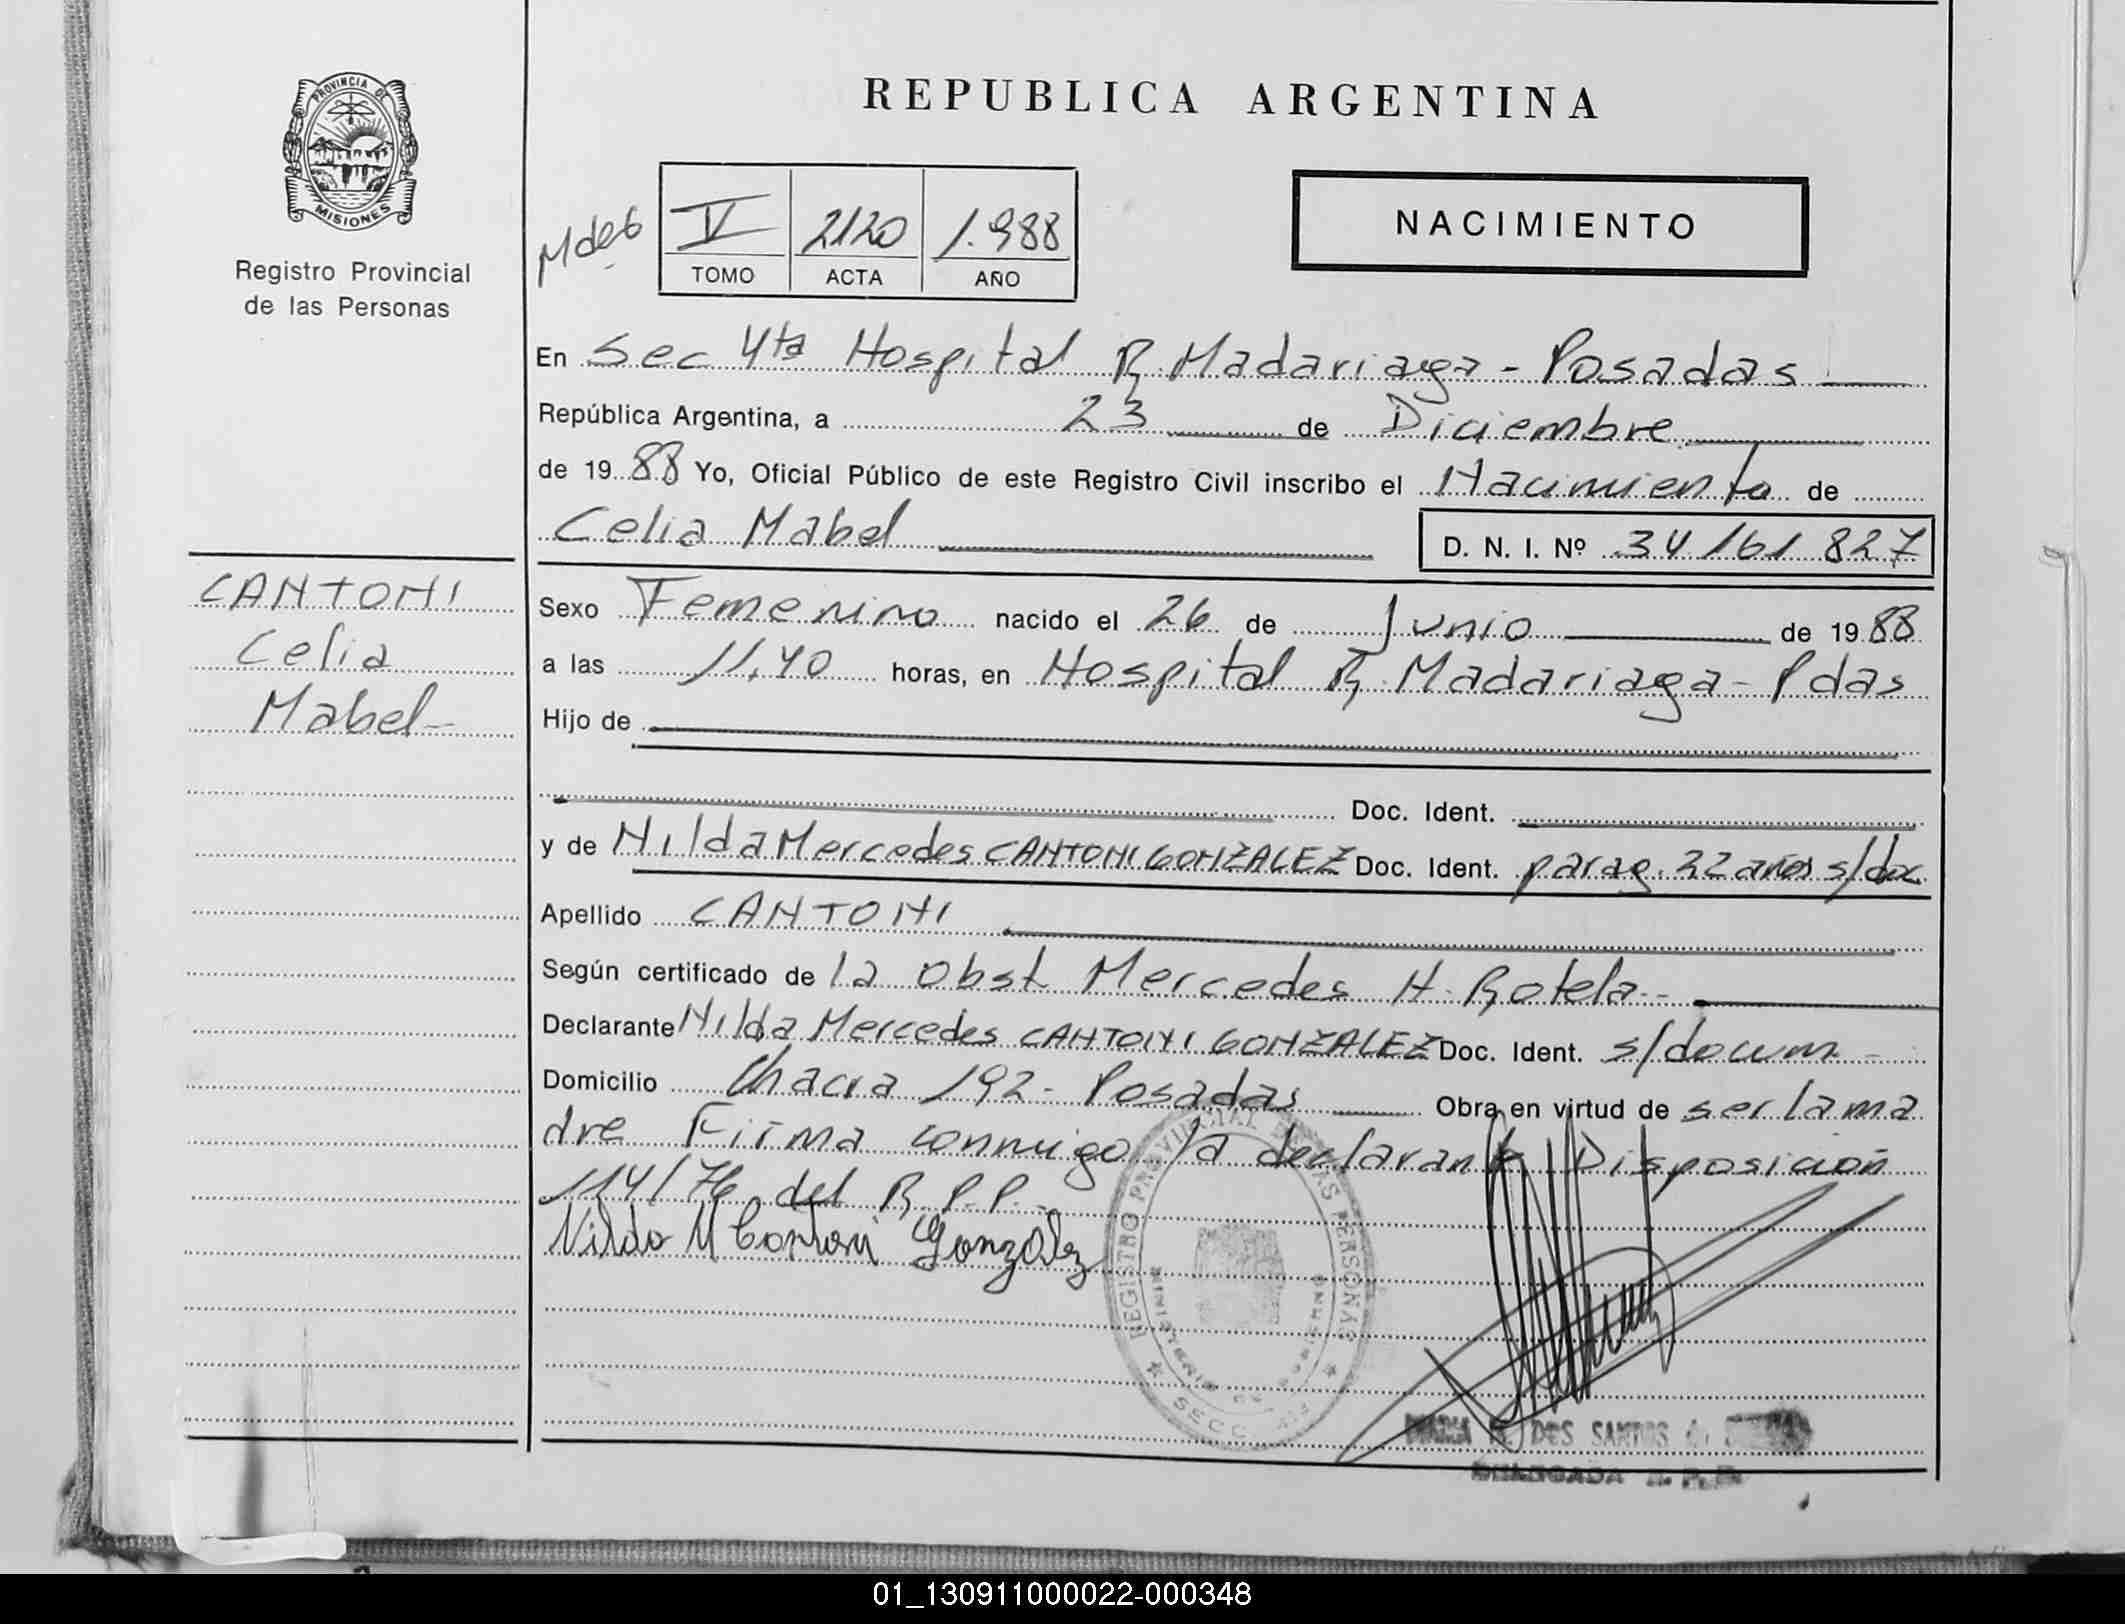 PROVINCIA DE
MISIONES
Registro Provincial
de las Personas
REPUBLICA ARGENTINA
NACIMIENTO
M de 6
V 2120 1.988
TOMO ACTA AÑO
En Sec 4ta Hospital R. Madariaga - Posadas
República Argentina, a 23 de Diciembre
de 19 88 Yo, Oficial Público de este Registro Civil inscribo el Nacimiento de
Celia Mabel D. N. I. Nº 34 161 827
CANTONI
Celia
Mabel-
Sexo Femenino nacido el 26 de Junio de 19 88
a las 11,40 horas, en Hospital R. Madariaga - Pdas
Hijo de
Doc. Ident.
y de Nilda Mercedes CANTONI GONZALEZ Doc. Ident. parag. 22 años s/doc
Apellido CANTONI
Según certificado de la Obst Mercedes N. Rotela -
Declarante Nilda Mercedes CANTONI GONZALEZ Doc. Ident. s/docum -
Domicilio Chacra 192 - Posadas Obra en virtud de ser la ma
dre Firma conmigo la declarante Disposición
114/76 del R.P.P.-
Nilda M Cantoni González
REGISTRO PROVINCIAL DE LAS PERSONAS
SECC. 4ta
DOS SANTOS
01_130911000022-000348